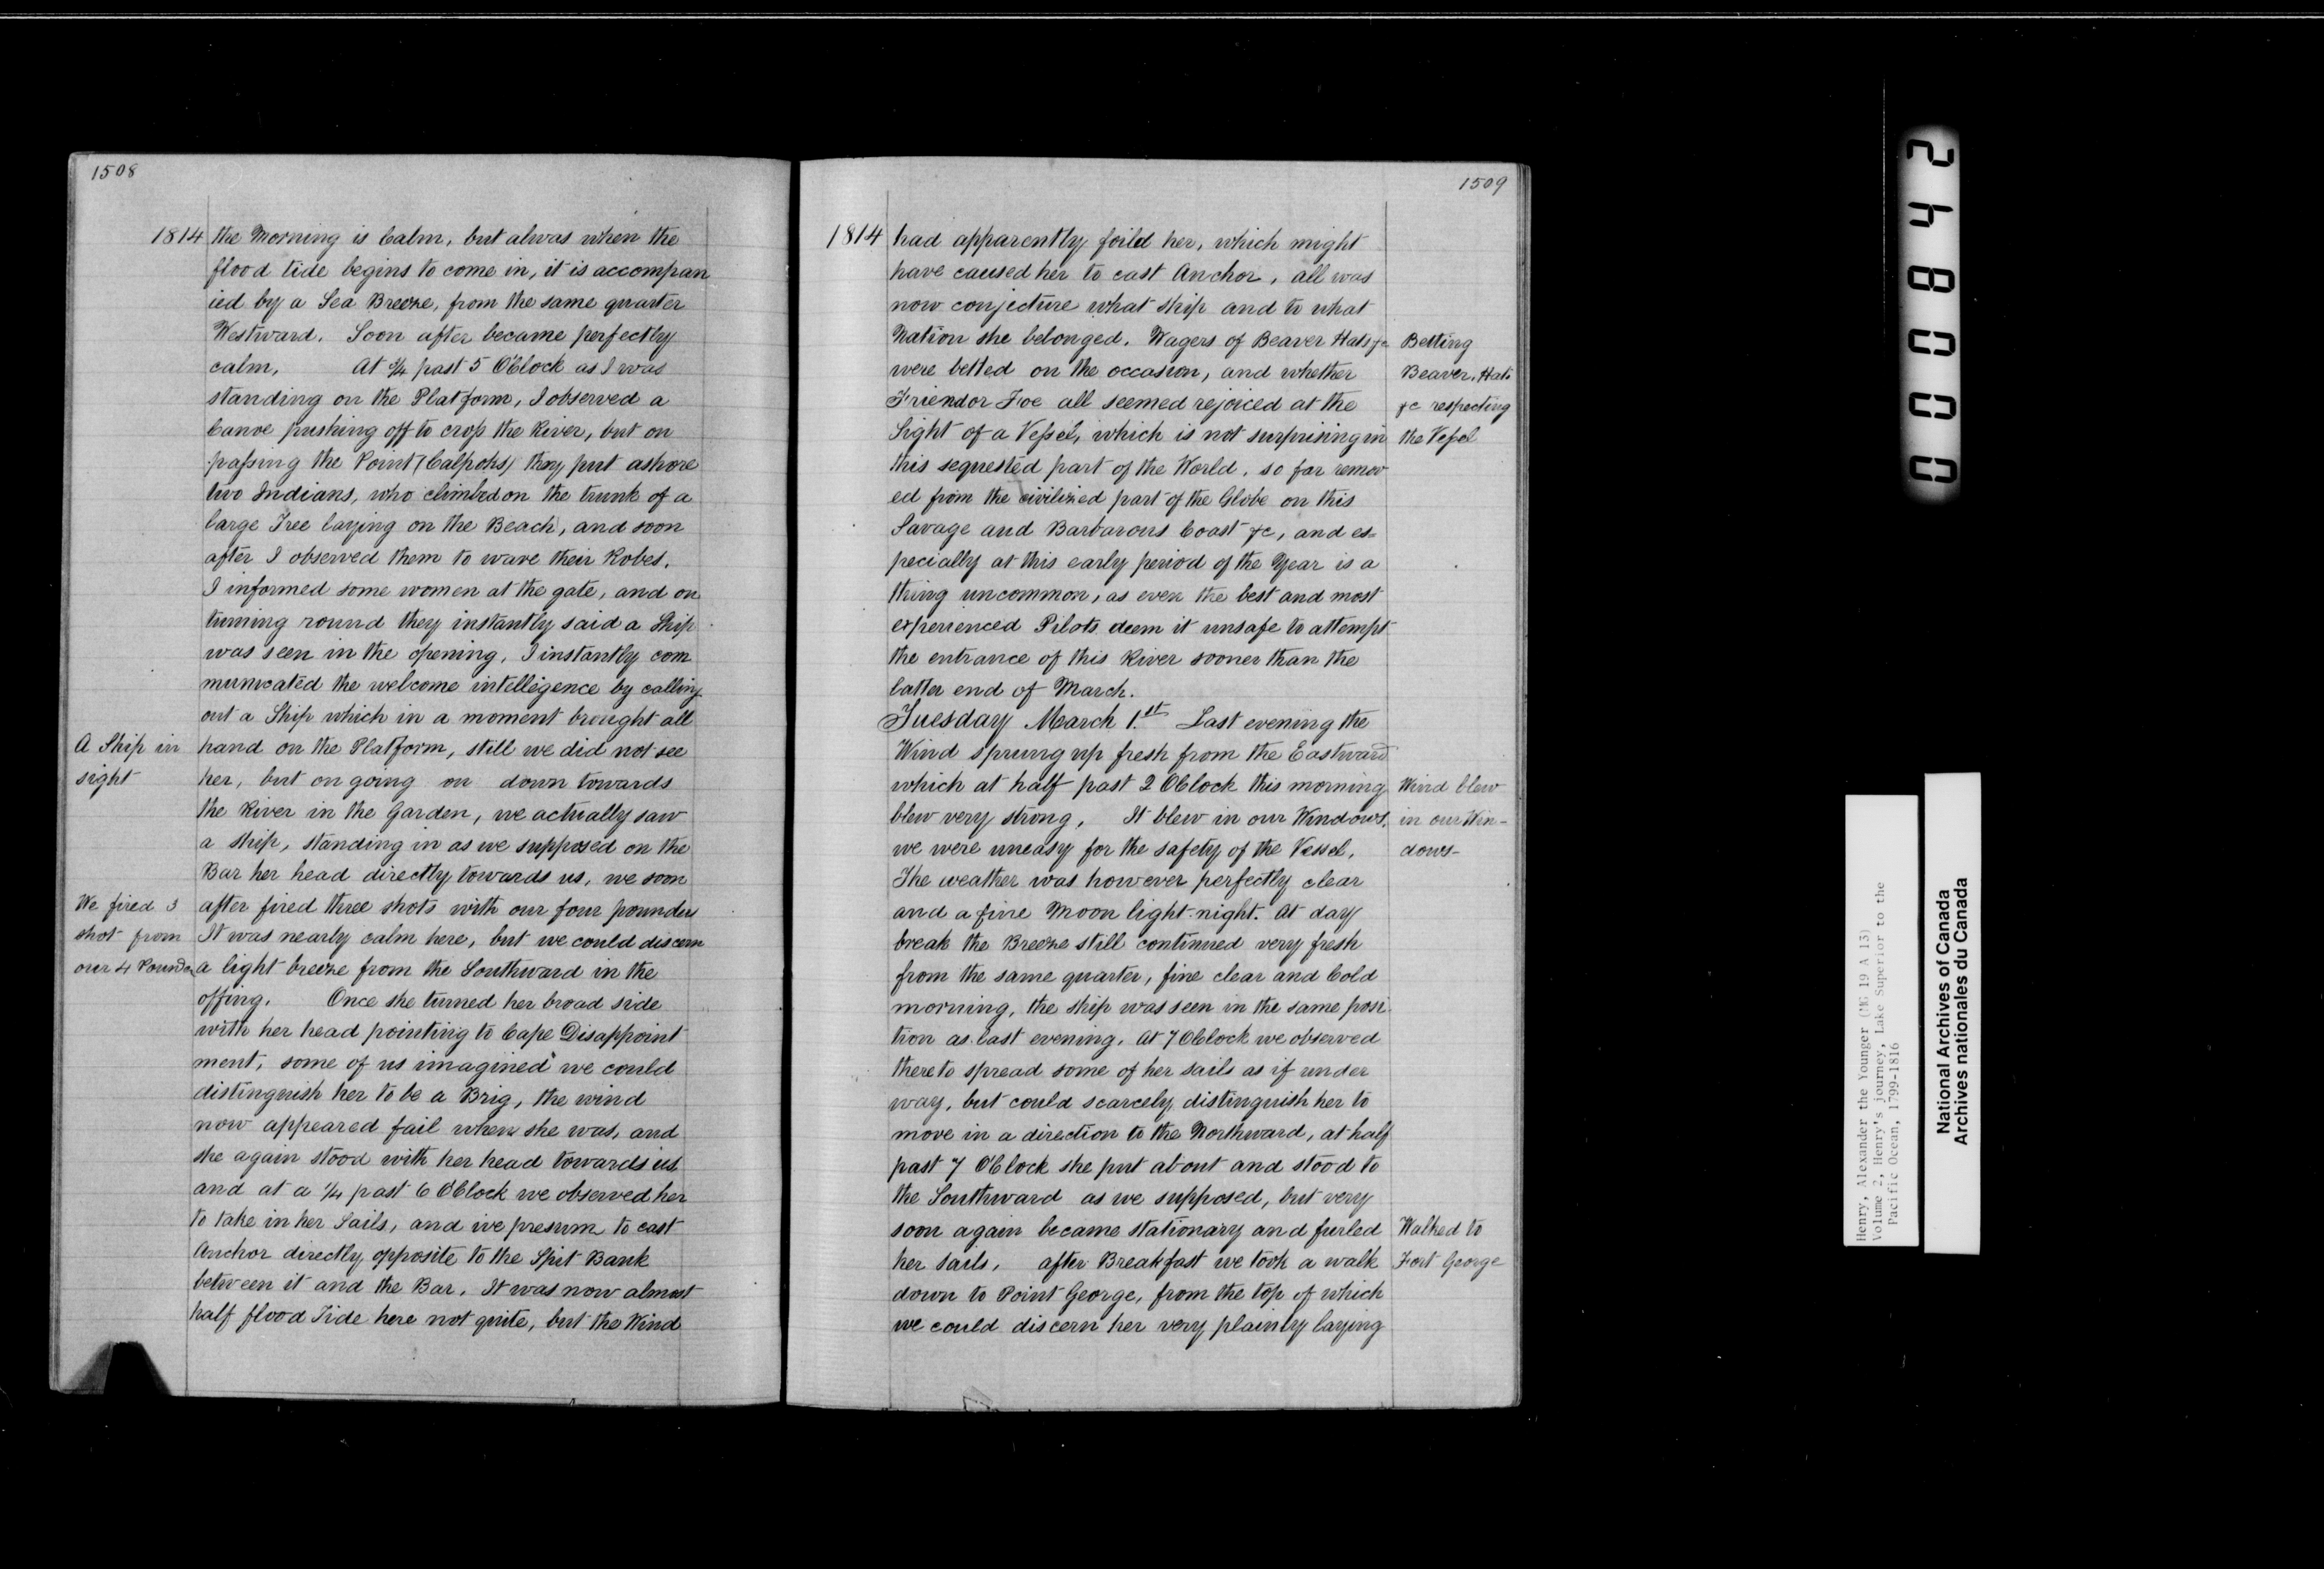 1508
1814 the Morning is Calm, but alwas when the
flood tide begins to come in, it is accompan
ied by a Sea Breeze, from the same quarter
Westward. Soon after became perfectly
calm, At ¾ past 5 O'Clock as I was
standing on the Platform, I observed a
Canoe pushing off to cross the River, but on
passing the Point (Calpohs) they put ashore
two Indians, who climbed on the trunk of a
large Tree laying on the Beach, and soon
after I observed them to wave their Robes.
I informed some women at the gate, and on
turning round they instantly said a Ship
was seen in the opening, I instantly com
municated the welcome intelligence by calling
out a Ship which in a moment brought all
A Ship in
sight
hand on the Platform, still we did not see
her, but on going on down towards
the River in the Garden, we actually saw
a ship, standing in as we supposed on the
Bar her head directly towards us, we soon
We fired 3
shot from
our 4 Pounder
after fired three shots with our four pounders
It was nearly calm here, but we could discern
a light breeze from the Southward in the
offing. Once she turned her broad side
with her head pointing to Cape Disappoint
ment, some of us imagined we could
distinguish her to be a Brig, the wind
now appeared fail where she was, and
she again stood with her head towards us
and at a ¼ past 6 O'Clock we observed her
to take in her Sails, and we presum to cast
Anchor directly opposite to the Spit Bank
between it and the Bar. It was now almost
half flood Tide here not quite, but the Wind
1509
1814 had apparently foild her, which might
have caused her to cast Anchor, all was
now conjecture what ship and to what
Nation she belonged. Wagers of Beaver Hats &c
were betted on the occasion, and whether
Friend or Foe all seemed rejoiced at the
Sight of a Vessel, which is not surprising in
Betting
Beaver, Hats
&c respecting
the Vessel
this sequested part of the World, so far remov
ed from the civilized part of the Globe on this
Savage and Barbarous Coast &c, and es=
pecially at this early period of the Year is a
thing uncommon, as even the best and most
experienced Pilots deem it unsafe to attempt
the entrance of this River sooner than the
latter end of March.
Tuesday March 1.st Last evening the
Wind sprung up fresh from the Eastward
which at half past 2 OClock this morning
blew very strong, It blew in our Windows.
we were uneasy for the safety of the Vessel.
Wind blew
in our Win-
dows-
The weather was however perfectly clear
and a fine Moon light night. At day
break the Breeze still continued very fresh
from the same quarter, fine clear and Cold
morning, the ship was seen in the same posi
tion as last evening. At 7 OClock we observed
there to spread some of her sails as if under
way, but could scarcely distinguish her to
move in a direction to the Northward, at half
past 7 O'Clock she put about and stood to
the Southward as we supposed, but very
soon again became stationary and furled
her sails, after Breakfast we took a walk
Walked to
Fort George
down to Point George, from the top of which
we could discern her very plainly laying
000842
Henry, Alexander the Younger (MG 19 A 13)
Volume 2, Henry's journey, Lake Superior to the
Pacific Ocean, 1799-1816
National Archives of Canada
Archives nationales du Canada